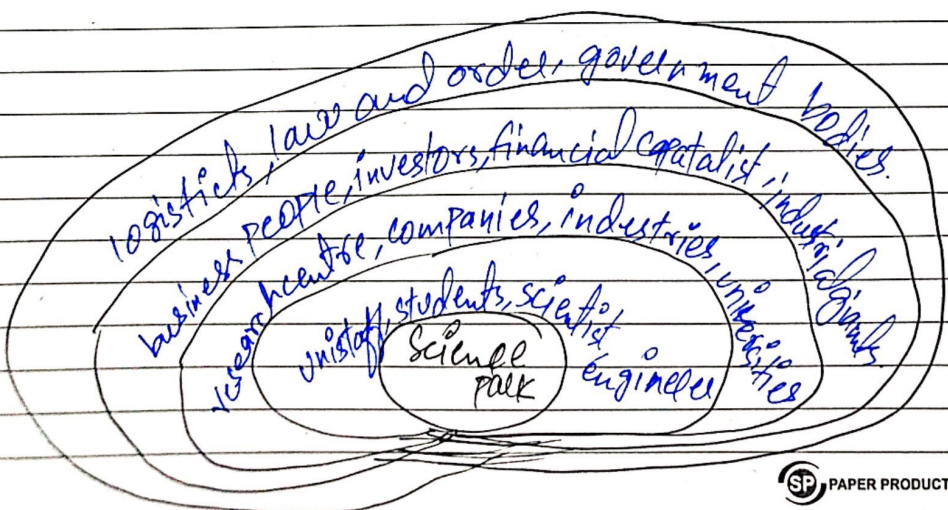 logisticts, law and order, government bodies.
business people, investors, financial capatalist, industrial giants.
research centre, companies, industries, universities
uni staff, students, scientist
engineer
Science
park
SP PAPER PRODUCT